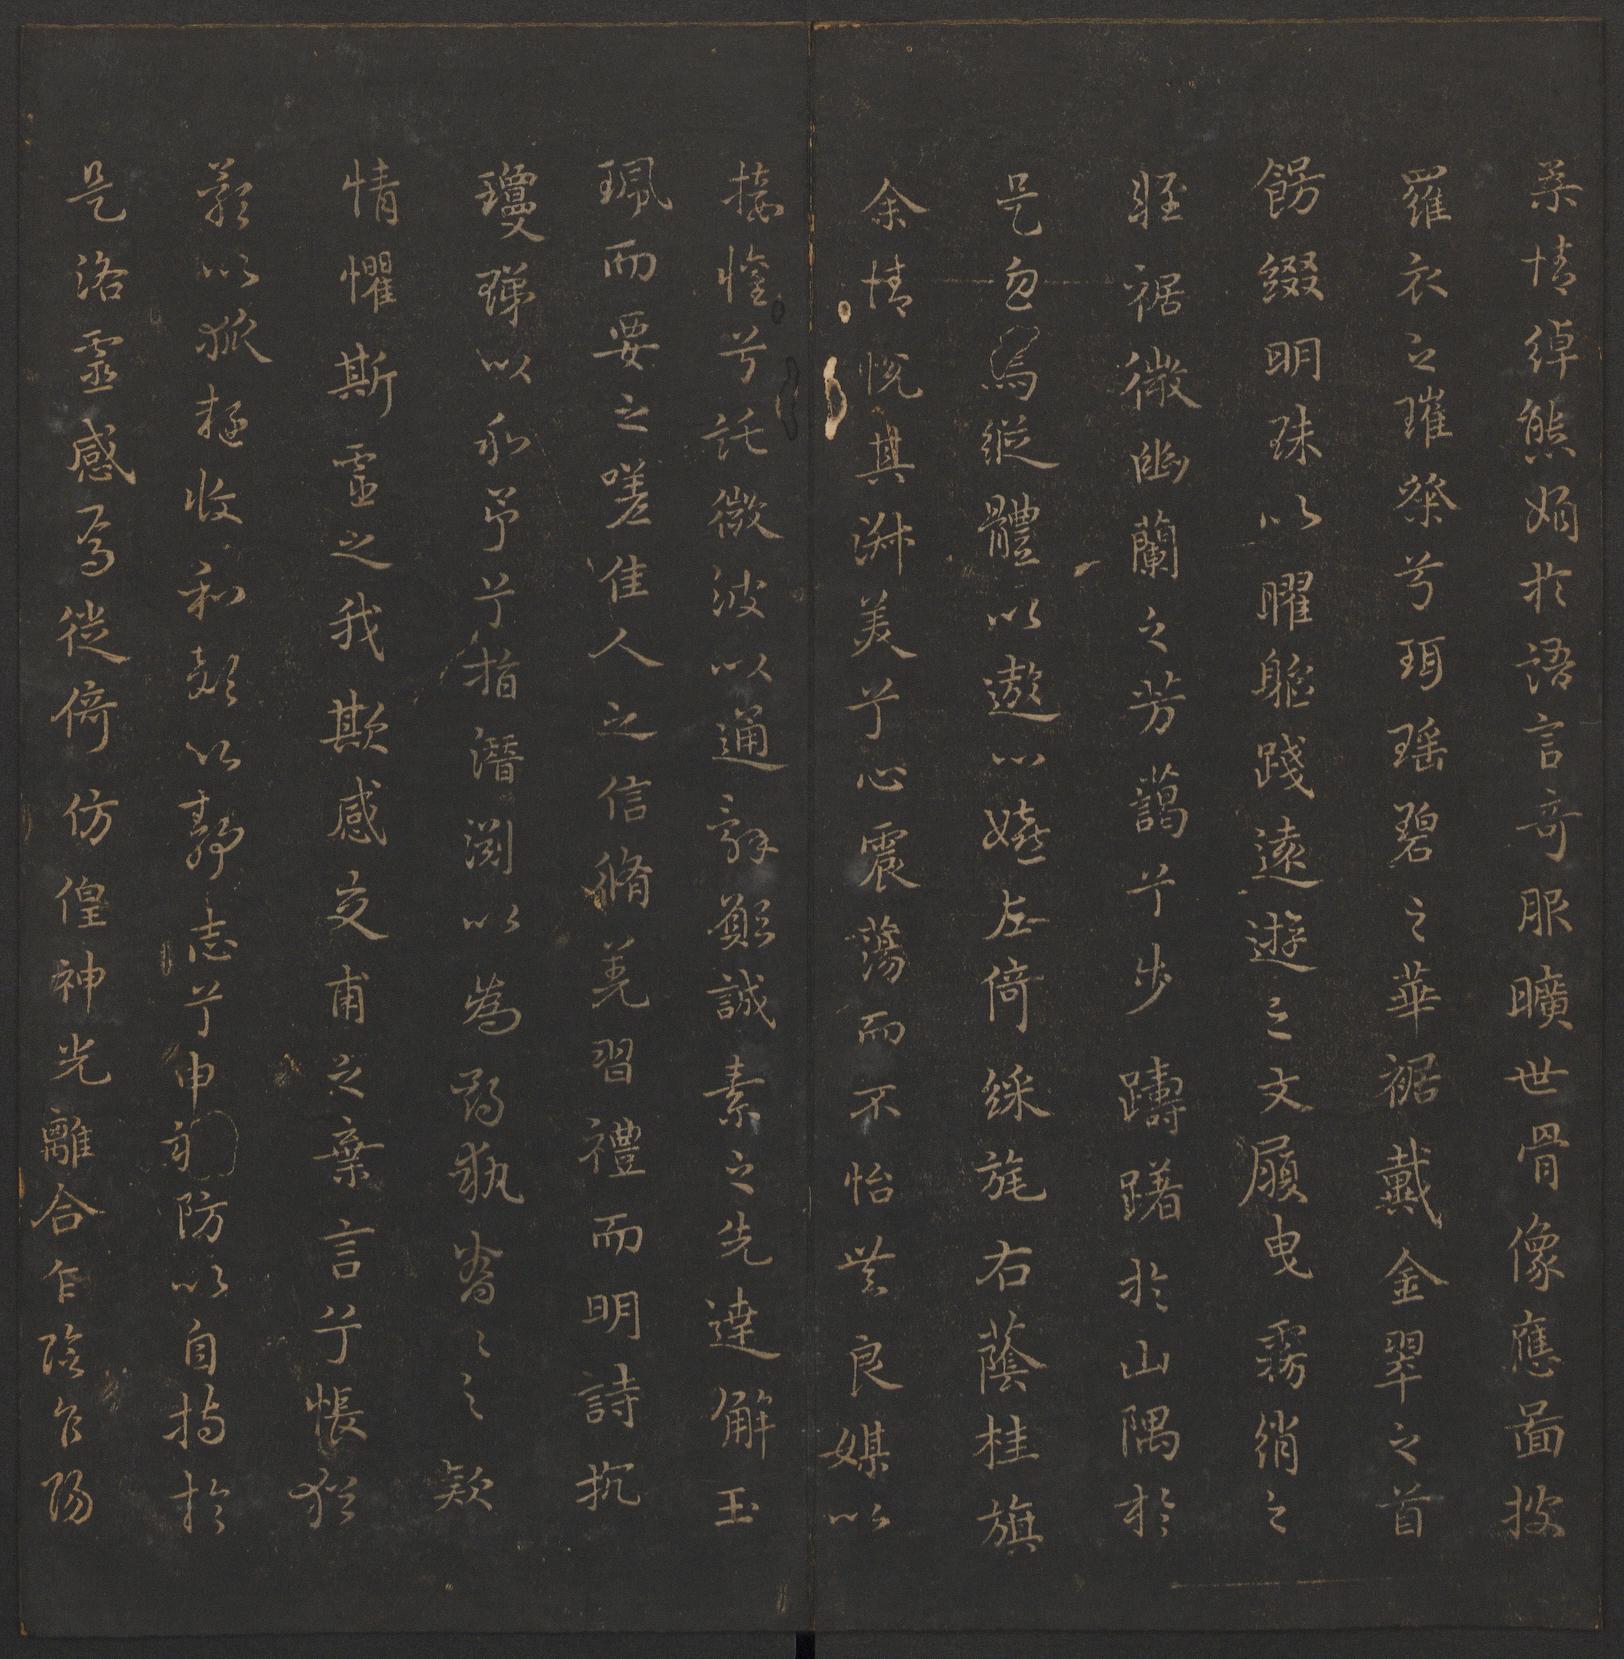 柔情綽態媚於語言奇服曠世骨像應圖披
羅衣之璀粲兮珥瑤碧之華裾戴金翠之首
餝綴明珠以曜軀踐遠遊之文履曳霧綃之
輕裾微幽蘭之芳藹兮步躊躇於山隅於
是忽焉縱體以遨以嬉左倚綵旄右蔭桂旗
余情悅其淑美兮心震蕩而不怡無良媒以
接懽兮託微波以通辭願誠素之先達解玉
珮而要之嗟佳人之信脩羌習禮而明詩抗
瓊珶以和予兮指潛淵以為期執眷々之款
情懼斯靈之我欺感交甫之棄言兮悵猶
豫以狐疑收和顏以静志兮申禮防以自持於
是洛靈感焉徙倚仿偟神光離合乍陰乍陽